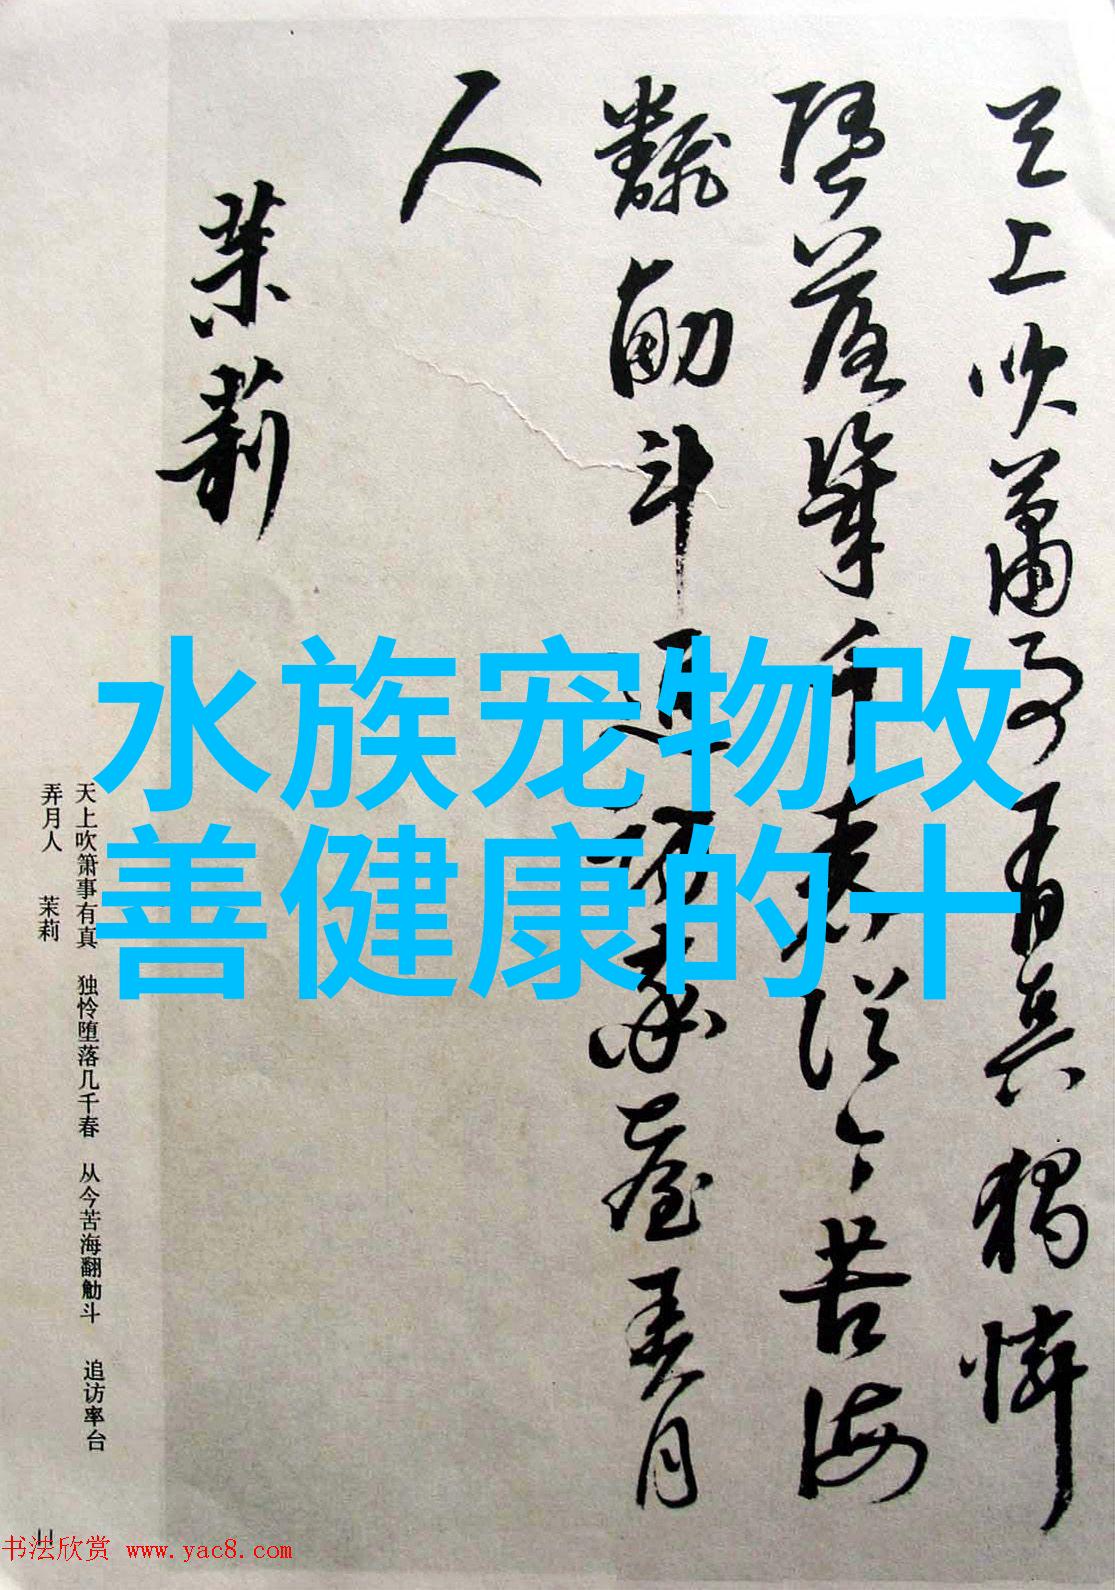 天上吹蕭事有真獨憐
墮落幾千春從今苦海
翻觔斗追訪率臺弄月
人
茉莉
水族宠物改
善健康的十
天上吹箫事有真 独怜堕落几千春 从今苦海翻觔斗 追访率台
弄月人 茉莉
11
书法欣赏 www.yac8.com